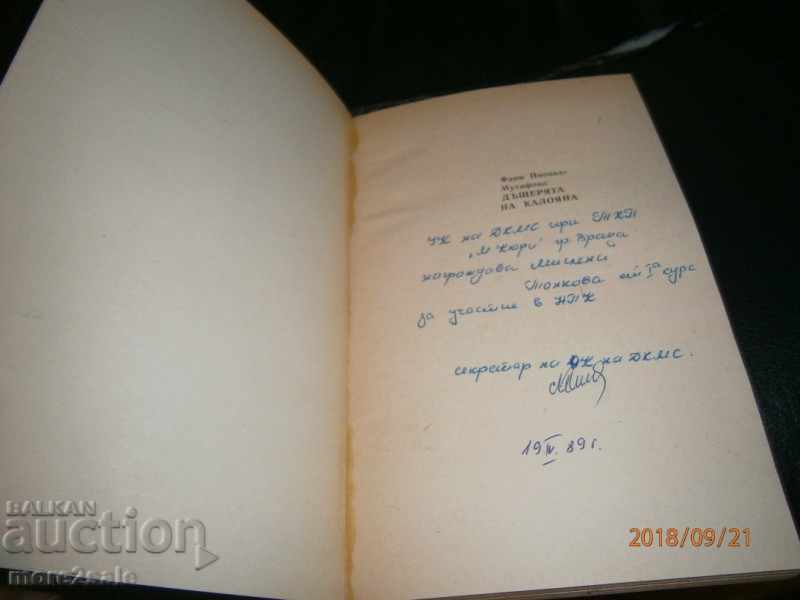 Фани Попова-
Мутафова
ДЪЩЕРЯТА
НА КАЛОЯНА
УК на ДКМС при ТХТ
"М Кюри" гр. Враца
награждава Милени
Тонкова от Iа курс
за участие в НТК
секретар на УК на ДКМС.
19 IV. 89 г.
2018/09/21
BALKAN
auction
more2sale